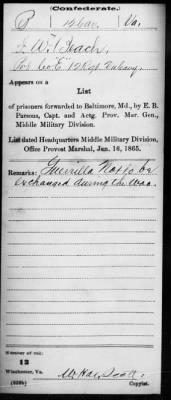 (Confederate.)
B | 12 Cav. | Va.
J. W. Beach
Pvt Co "E" 12 Regt Va Cavy.
Appears on a
List
of prisoners forwarded to Baltimore, Md., by E. B.
Parsons, Capt. and Actg. Prov. Mar. Gen.,
Middle Military Division.
List dated Headquarters Middle Military Division,
Office Provost Marshal, Jan. 16, 1865.
Remarks: Guerrilla Not to be
exchanged during the War.
Number of roll:
12
Winchester, Va.
Copyist.